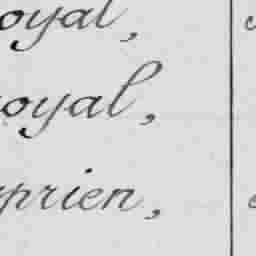 oyal,
oyal,
prien,